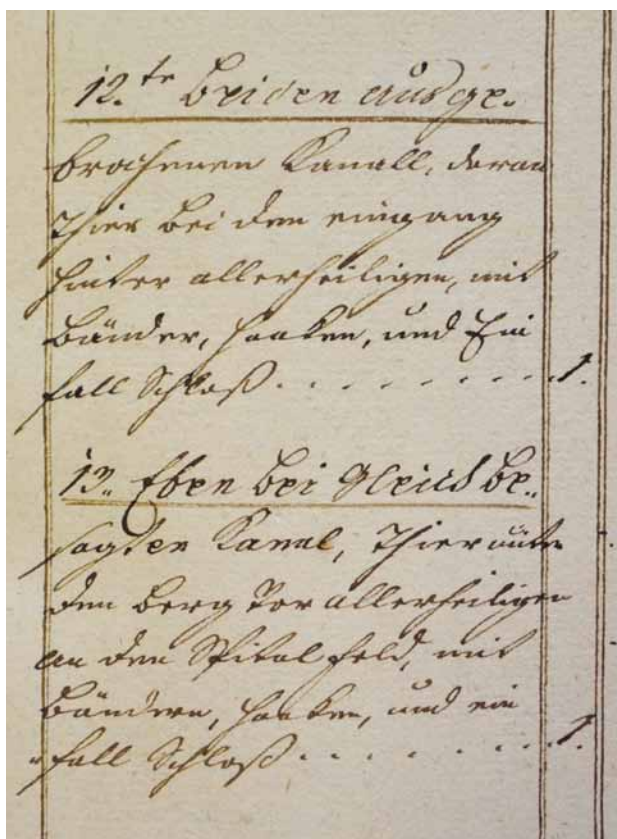 12.te beiden ausge-
brochenen Kanall, daran
Thier bei den eingang
hinter allerheiligen, mit
Bänder, haaken, und Ein
fall Schloß . . . . . . . . . 1.
13. Eben bei gleich be-
sagten Kanal, Thier unte
den berg vor allerheiligen
an den Spital feld, mit
Bändern, haaken, und ein
fall Schloß . . . . . . . . . 1.